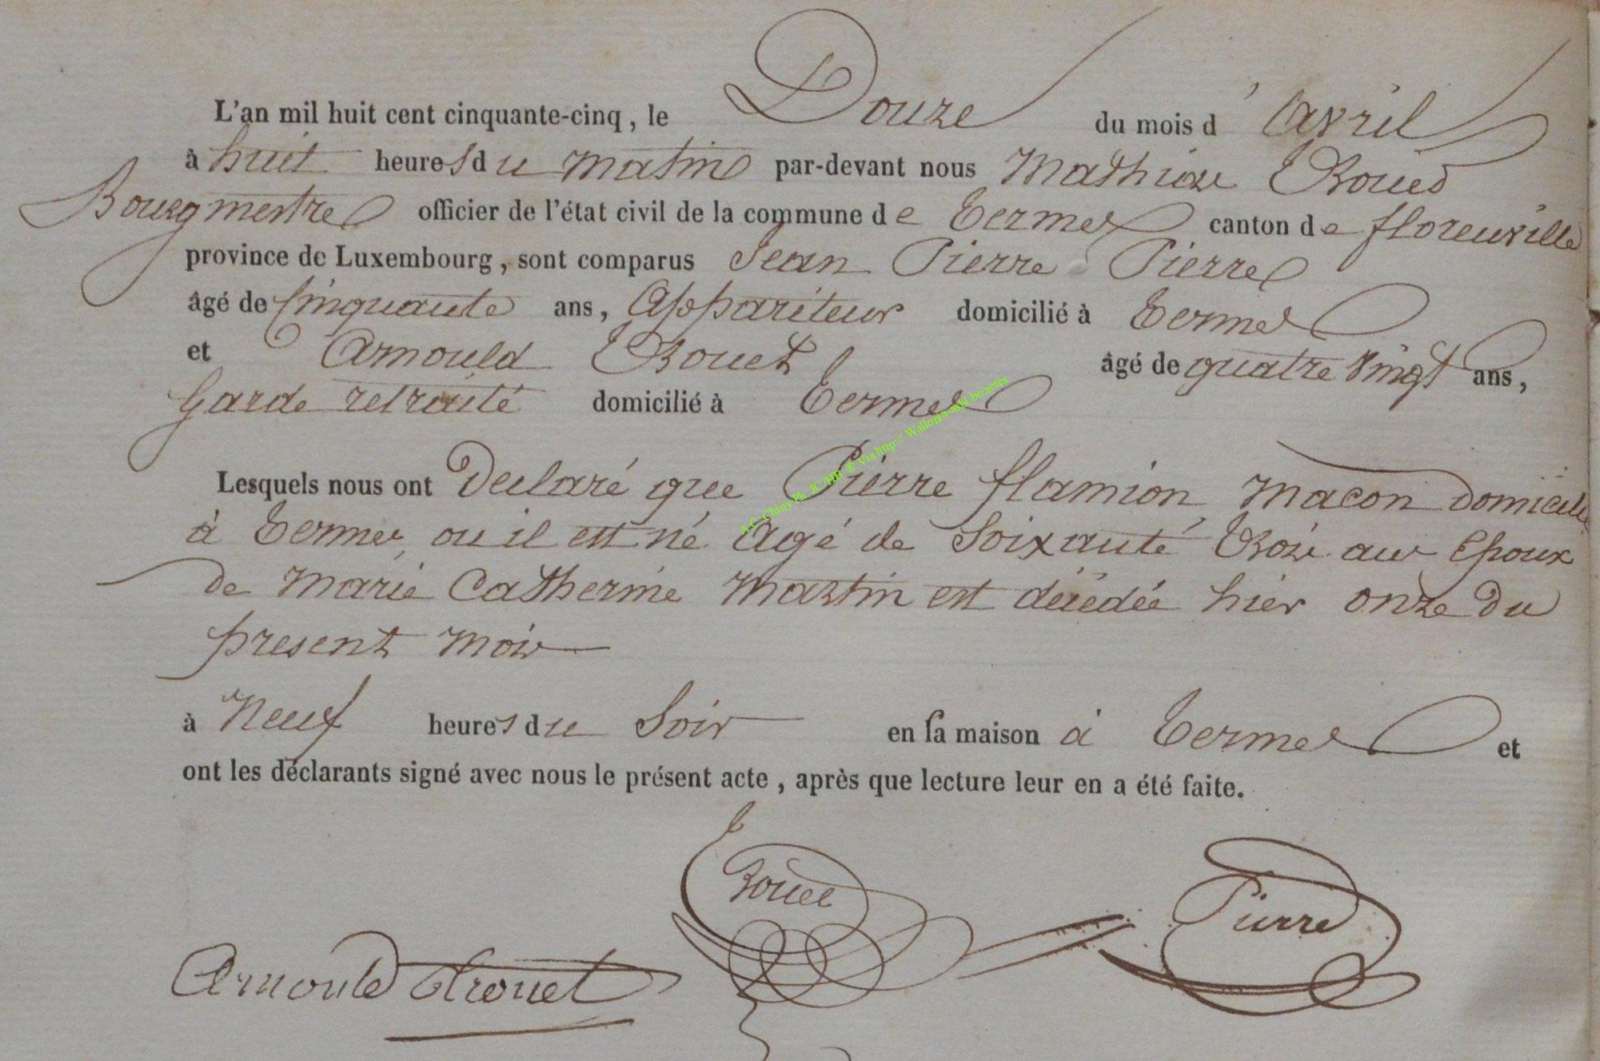 L'an mil huit cent cinquante-cinq, le Douze du mois d'avril
à huit heures du matin par-devant nous Mathieu
Bourgmestre officier de l'état civil de la commune de Termes canton de florenville
province de Luxembourg, sont comparus Jean Pierre Pierre
âgé de Cinquante ans, Appariteur domicilié à Termes
et Arnould Trouet âgé de quatre vingt ans,
Garde retraité domicilié à Termes
Lesquels nous ont Declaré que Pierre flamion macon domicilié
à Termes ou il est né Agé de Soixante Trois ans Epoux
de Marie Catherine Martin est décédé hier onze du
present mois
à Neuf heures du Soir en sa maison à Termes et
ont les déclarants signé avec nous le présent acte, après que lecture leur en a été faite.
Pierre
Arnould trouet